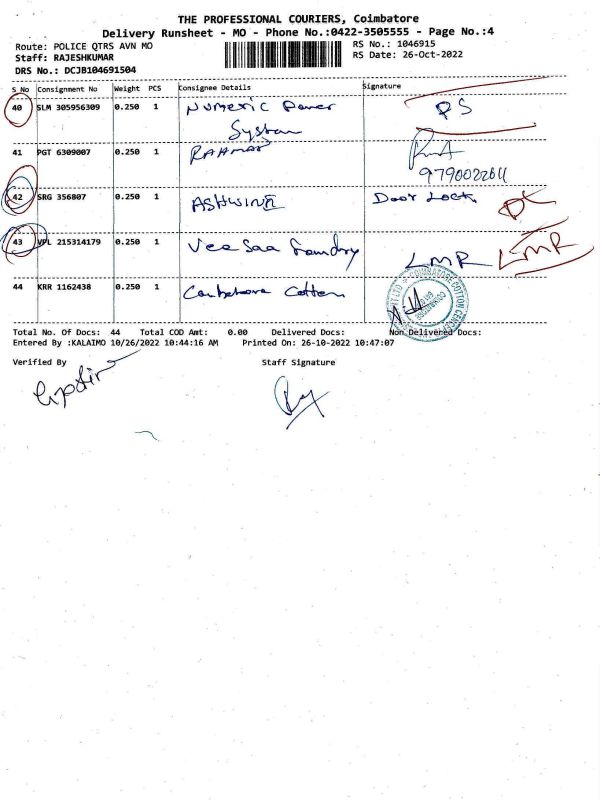 THE PROFESSIONAL COURIERS, Coimbatore
Delivery Runsheet - MO - Phone No.:0422-3505555 - Page No.:4
Route: POLICE QTRS AVN MO
RS No.: 1046915
Staff: RAJESHKUMAR
RS Date: 26-Oct-2022
DRS No.: DCJB104691504
S No Consignment No Weight PCS Consignee Details Signature
40 SLM 305956309 0.250 1 Numeric Power PS
System
41 PGT 6309007 0.250 1 RAHMAN
9790022611
42 SRG 356807 0.250 1 ASHWINI Door Lock DL
43 VPL 215314179 0.250 1 Vee Saa Foundry LMR LMR
44 KRR 1162438 0.250 1 Cotton
COIMBATORE COTTON CENTER
Total No. Of Docs: 44 Total COD Amt: 0.00 Delivered Docs: Non Delivered Docs:
Entered By :KALAIMO 10/26/2022 10:44:16 AM Printed On: 26-10-2022 10:47:07
Verified By Staff Signature